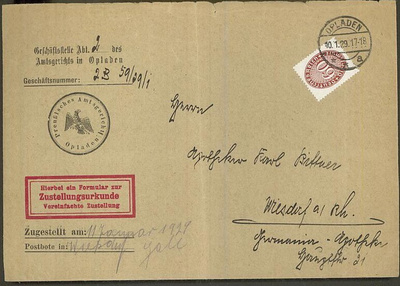 Geschäftsstelle Abt. 2 des
Amtsgerichts in Opladen
Geschäftsnummer: 2 B 59/29/1
Preußisches Amtsgericht
Opladen
OPLADEN
10.1.29.17-18
a
50
Herrn
Apotheker Karl Bittner
Wiesdorf a/Rh.
Germania-Apotheke
Hierbei ein Formular zur
Zustellungsurkunde
Vereinfachte Zustellung
Zugestellt am: 11 Januar 1929
Postbote in: Wiesdorf